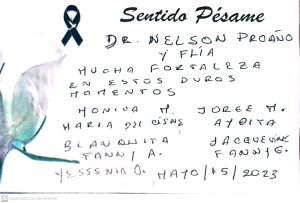 Sentido Pésame
DR. NELSON PROAÑO
Y FLIA
MUCHA FORTALEZA
EN ESTOS DUROS
MOMENTOS
MONICA M. JORGE M.
MARIA DEL CISNE AYDITA
BLANQUITA JACQUELINE
FANNY A. FANNY G.
YESSENIA O. MAYO/15/2023